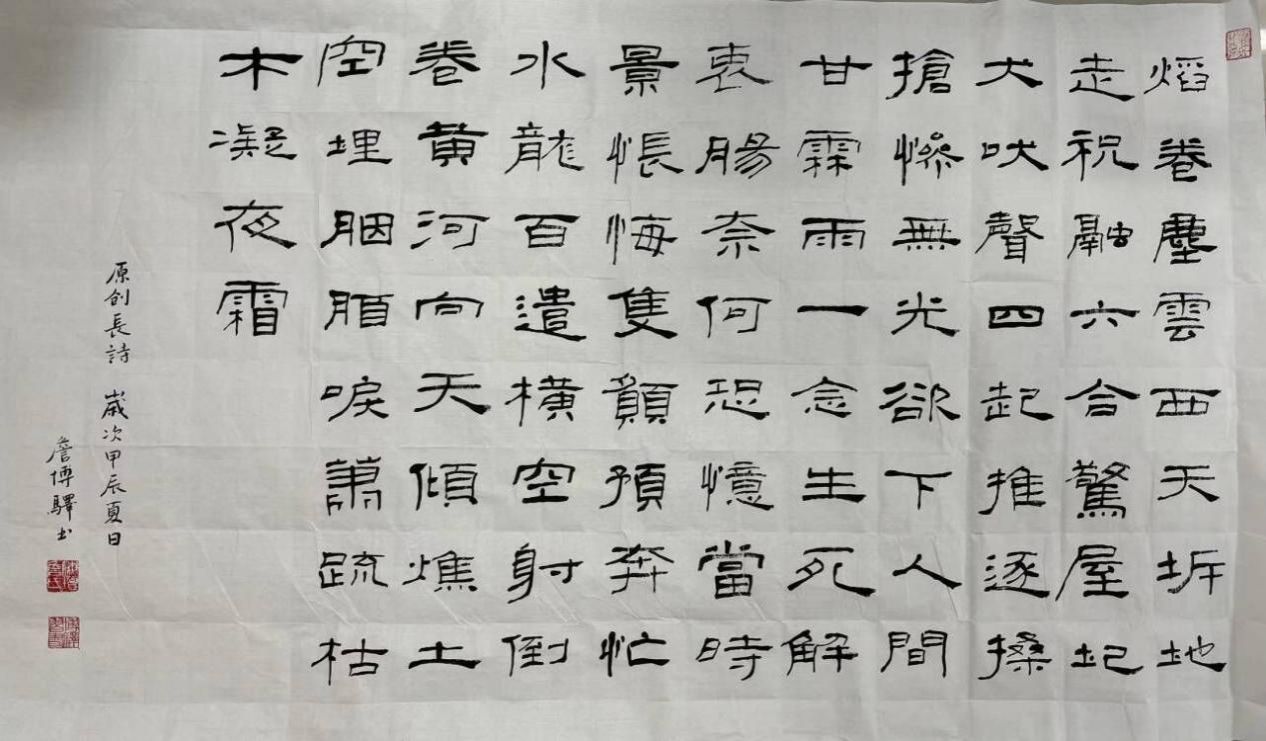 焰卷塵雲西天坼地
走祝融六合驚屋圮
犬吠聲四起推逐搡
搶慘無光欲下人間
甘霖雨一念生死解
衷腸奈何恐憶當時
景悵悔隻顢頇奔忙
水龍百遣橫空射倒
卷黃河向天傾燋土
空埋胭脂唳蕭疏枯
木凝夜霜
原创長詩 歲次甲辰夏日
詹博驛书